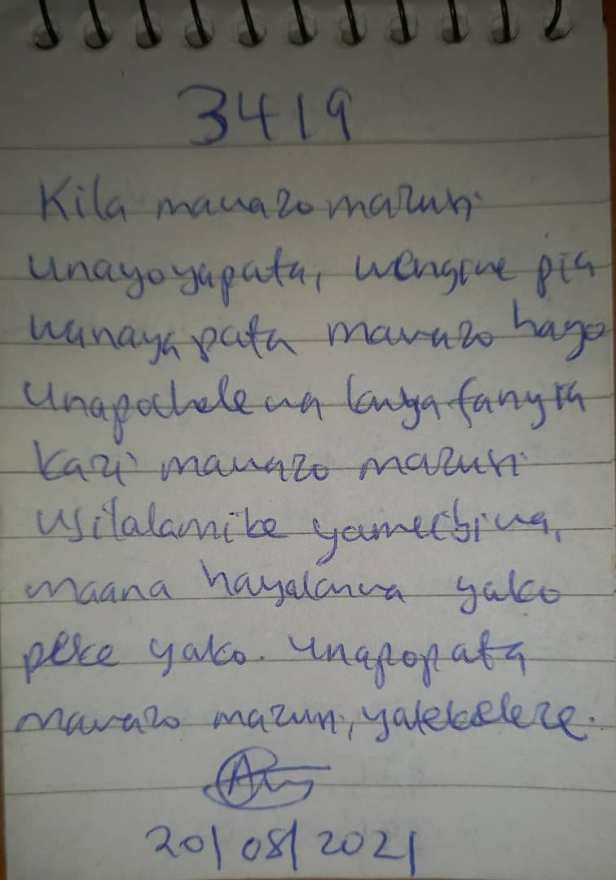 3419
Kila mawazo mazuri
unayoyapata, wengine pia
wanayapata mawazo hayo
unapochelewa kuyafanyia
kazi mawazo mazuri
usilalamike yameibiwa,
maana hayakuwa yako
peke yako. unapopata
mawazo mazuri, yatekeleze.
20/08/2021